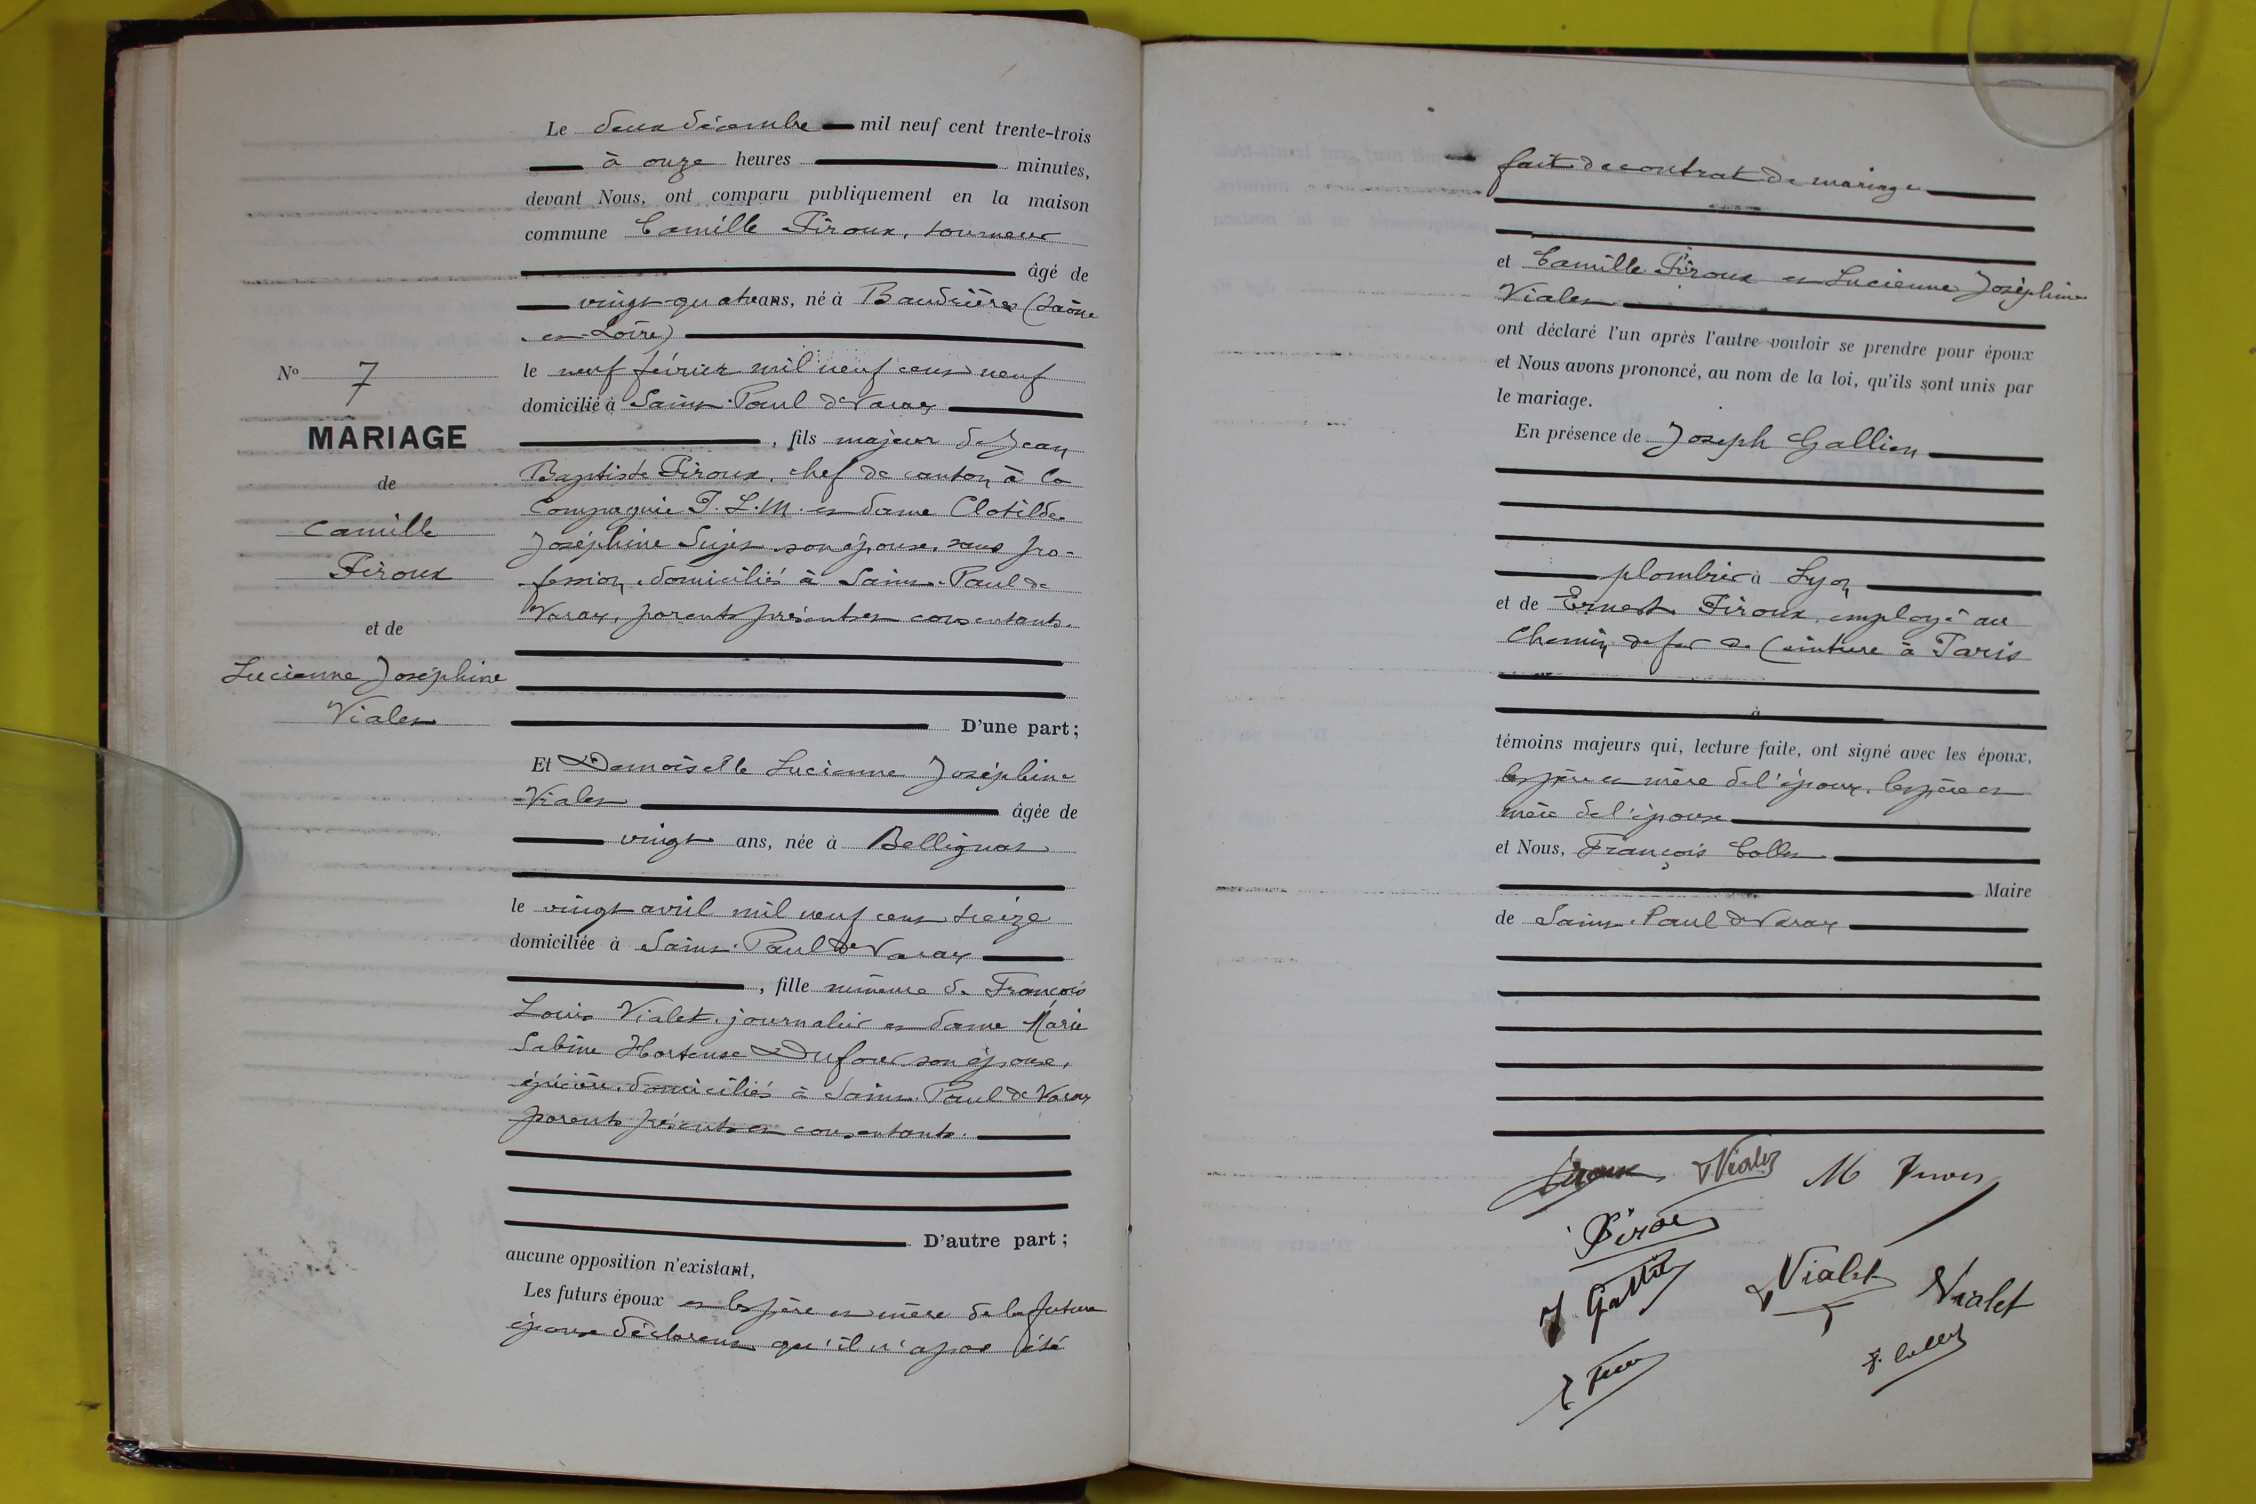 Le deux décembre mil neuf cent trente-trois
à onze heures minutes,
devant Nous, ont comparu publiquement en la maison
commune Camille Piroux, tourneur
âgé de
vingt quatre ans, né à Baudrières (Saône
et-Loire)
le neuf février mil neuf cent neuf
domicilié à Saint-Paul de Varax
, fils majeur de Jean
Baptiste Piroux, chef de canton à la
Compagnie P.L.M. et dame Clotilde
Joséphine son épouse, sans pro-
fession, domiciliés à Saint-Paul de
Varax, parents présents et consentants.
D'une part;
N° 7
MARIAGE
de
Camille
Piroux
et de
Lucienne Joséphine
Vialet
Et Demoiselle Lucienne Joséphine
Vialet âgée de
vingt ans, née à Bellignat
le vingt avril mil neuf cent treize
domiciliée à Saint-Paul de Varax
, fille mineure de François
Louis Vialet, journalier et dame Marie
Sabine Hortense Dufour son épouse,
épicière, domiciliés à Saint-Paul de Varax
parents présents et consentants.
D'autre part;
aucune opposition n'existant,
Les futurs époux et les père et mère de la future
épouse déclarent qu'il n'a pas été
fait de contrat de mariage
et Camille Piroux et Lucienne Joséphine
Vialet
ont déclaré l'un après l'autre vouloir se prendre pour époux
et Nous avons prononcé, au nom de la loi, qu'ils sont unis par
le mariage.
En présence de Joseph Gallien
plombier à Lyon
et de Ernest Piroux, employé au
Chemin de fer de Ceinture à Paris
à
témoins majeurs qui, lecture faite, ont signé avec les époux,
les père et mère de l'époux, les père et
mère de l'épouse
et Nous, François Collet
Maire
de Saint-Paul de Varax
Piroux Vialet M
J. Vialet Vialet
F. Collet